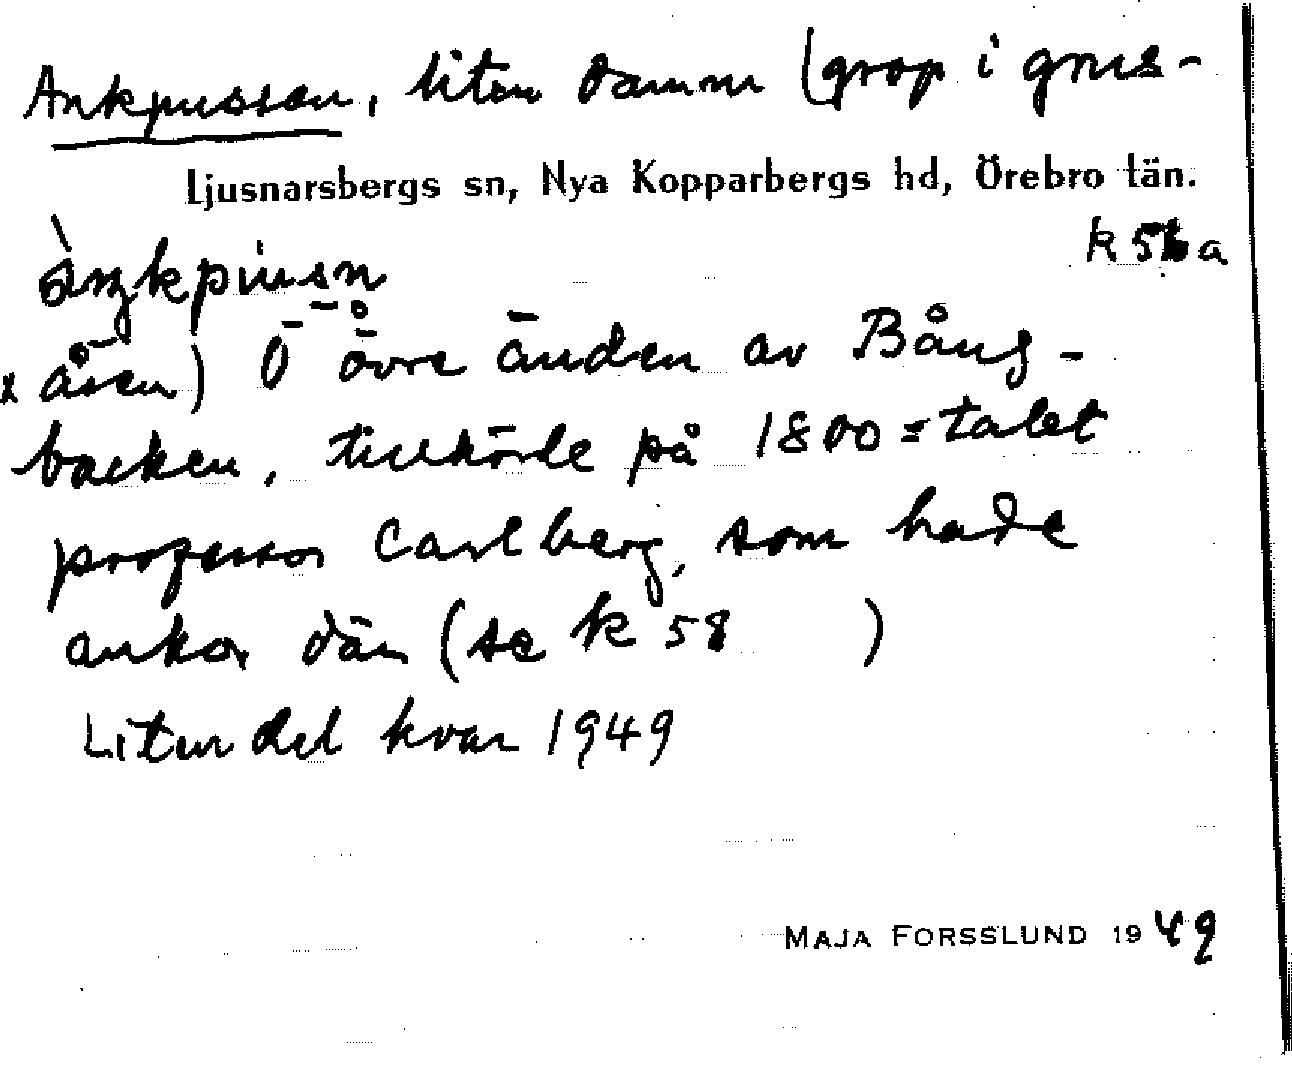 Ankpussen, liten damm (grop i grus-
Ljusnarsbergs sn, Nya Kopparbergs hd, Örebro län.
k 56 a
x åsen) Ö övre änden av Bång-
backen, tillhörde på 1800-talet
professor Carlberg, som hade
ankor där (se k 58 )
Liten del kvar 1949
MAJA FORSSLUND 1949